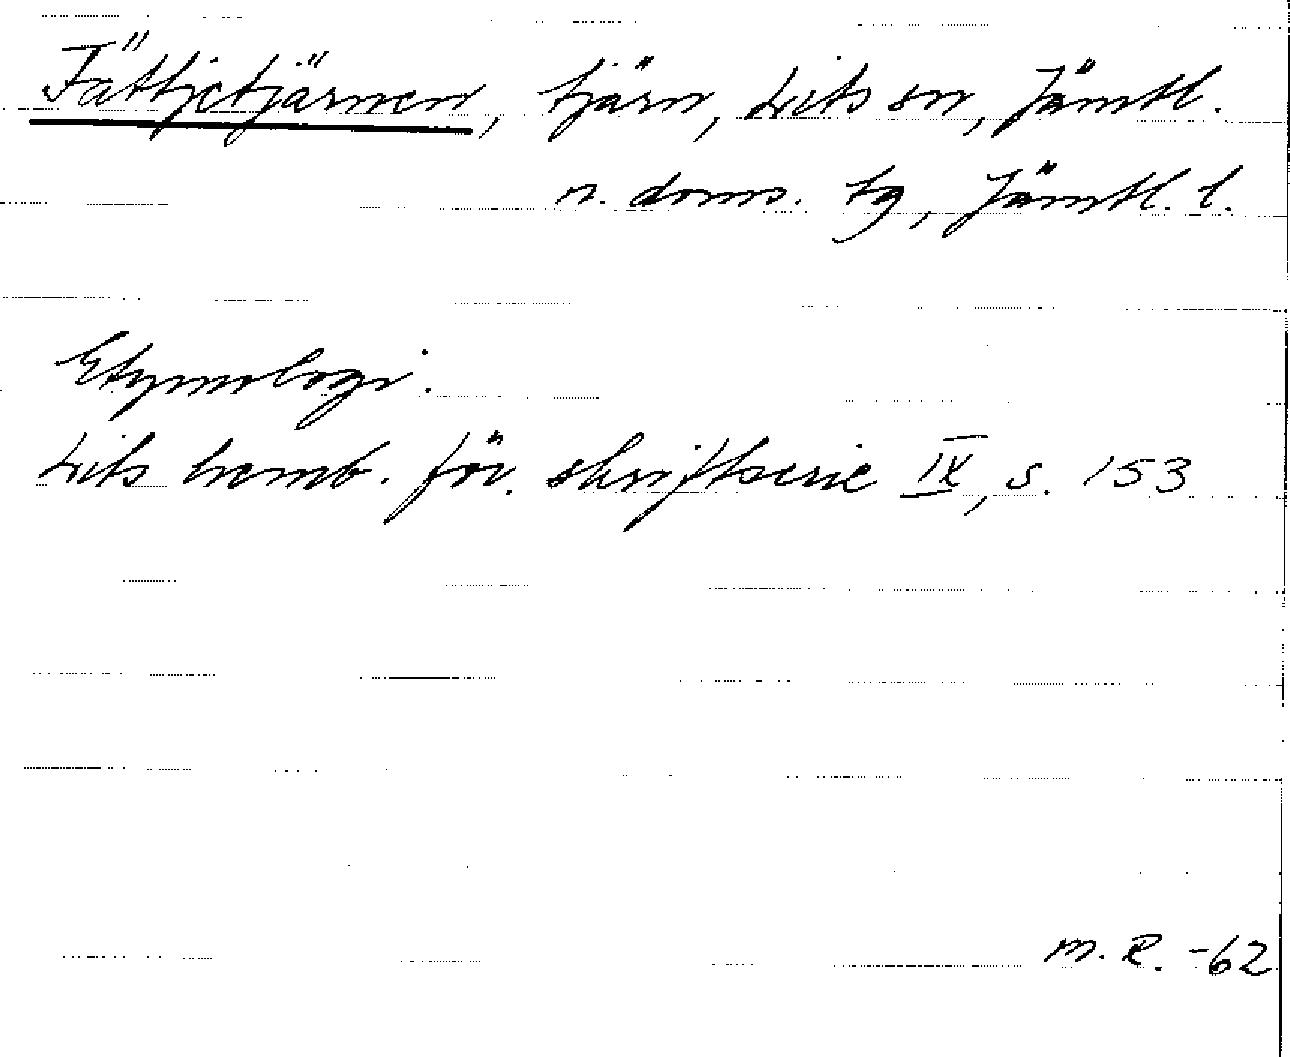 Fättjetjärnen, tjärn, Lits sn, Jämtl.
n. doms. tg, Jämtl. l.
Etymologi:
Lits hemb. för. skriftserie IX, s. 153
M. R. -62